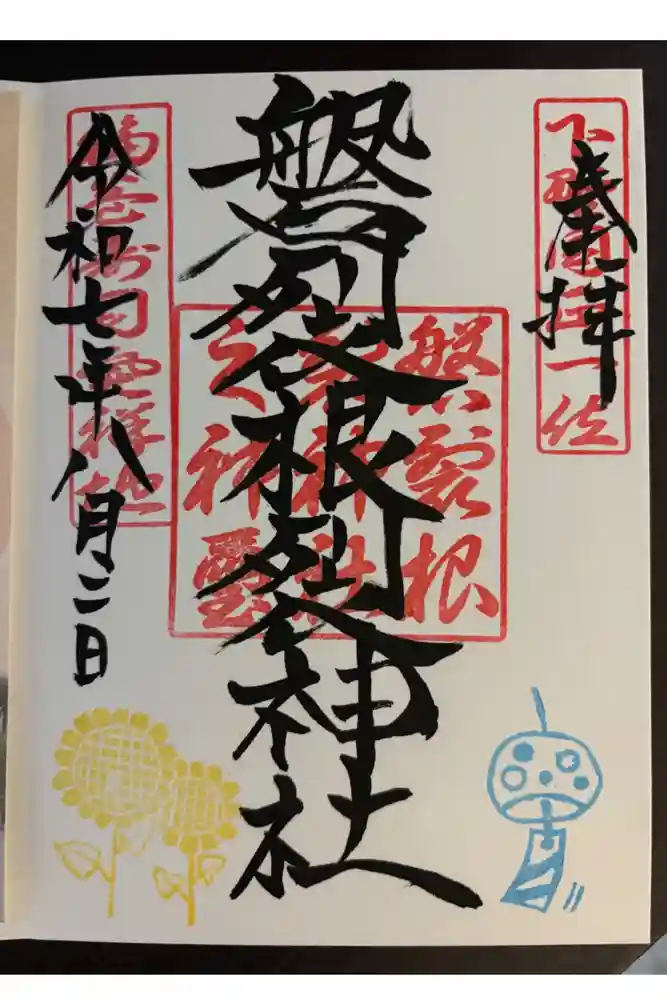 奉拝
下野國正一位
磐裂根裂神社
磐裂根
裂神社
之神靈
令和七年八月二日